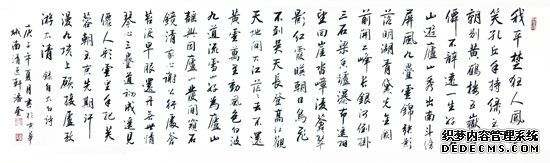 我本楚狂人鳳
笑孔丘手持綠玉
朝別黃鶴樓五嶽
僊不辭遠一生好
山遊廬山秀出南斗傍
屏風九疊雲錦張影
落明湖青黛光金闕
前開二峰長銀河倒掛
三石梁香爐瀑布遙相
望迴崖沓嶂凌蒼蒼
影紅霞映朝日鳥飛
不到吳天長登高壯觀
天地間大江茫茫去不還
黃雲萬里動風色白波
九道流雪山好為廬山
謠興因廬山發閒窺石
鏡清我心謝公行處蒼
苔沒早服還丹無世情
琴心三疊道初成遙見
僊人彩雲裏手把芙
蓉朝玉京先期汗
漫九垓上願接盧敖
遊太清 錄李白詩
庚子年夏月書於京華
城南清遠軒 潘奎
织梦内容管理系统
DEDECMS.COM